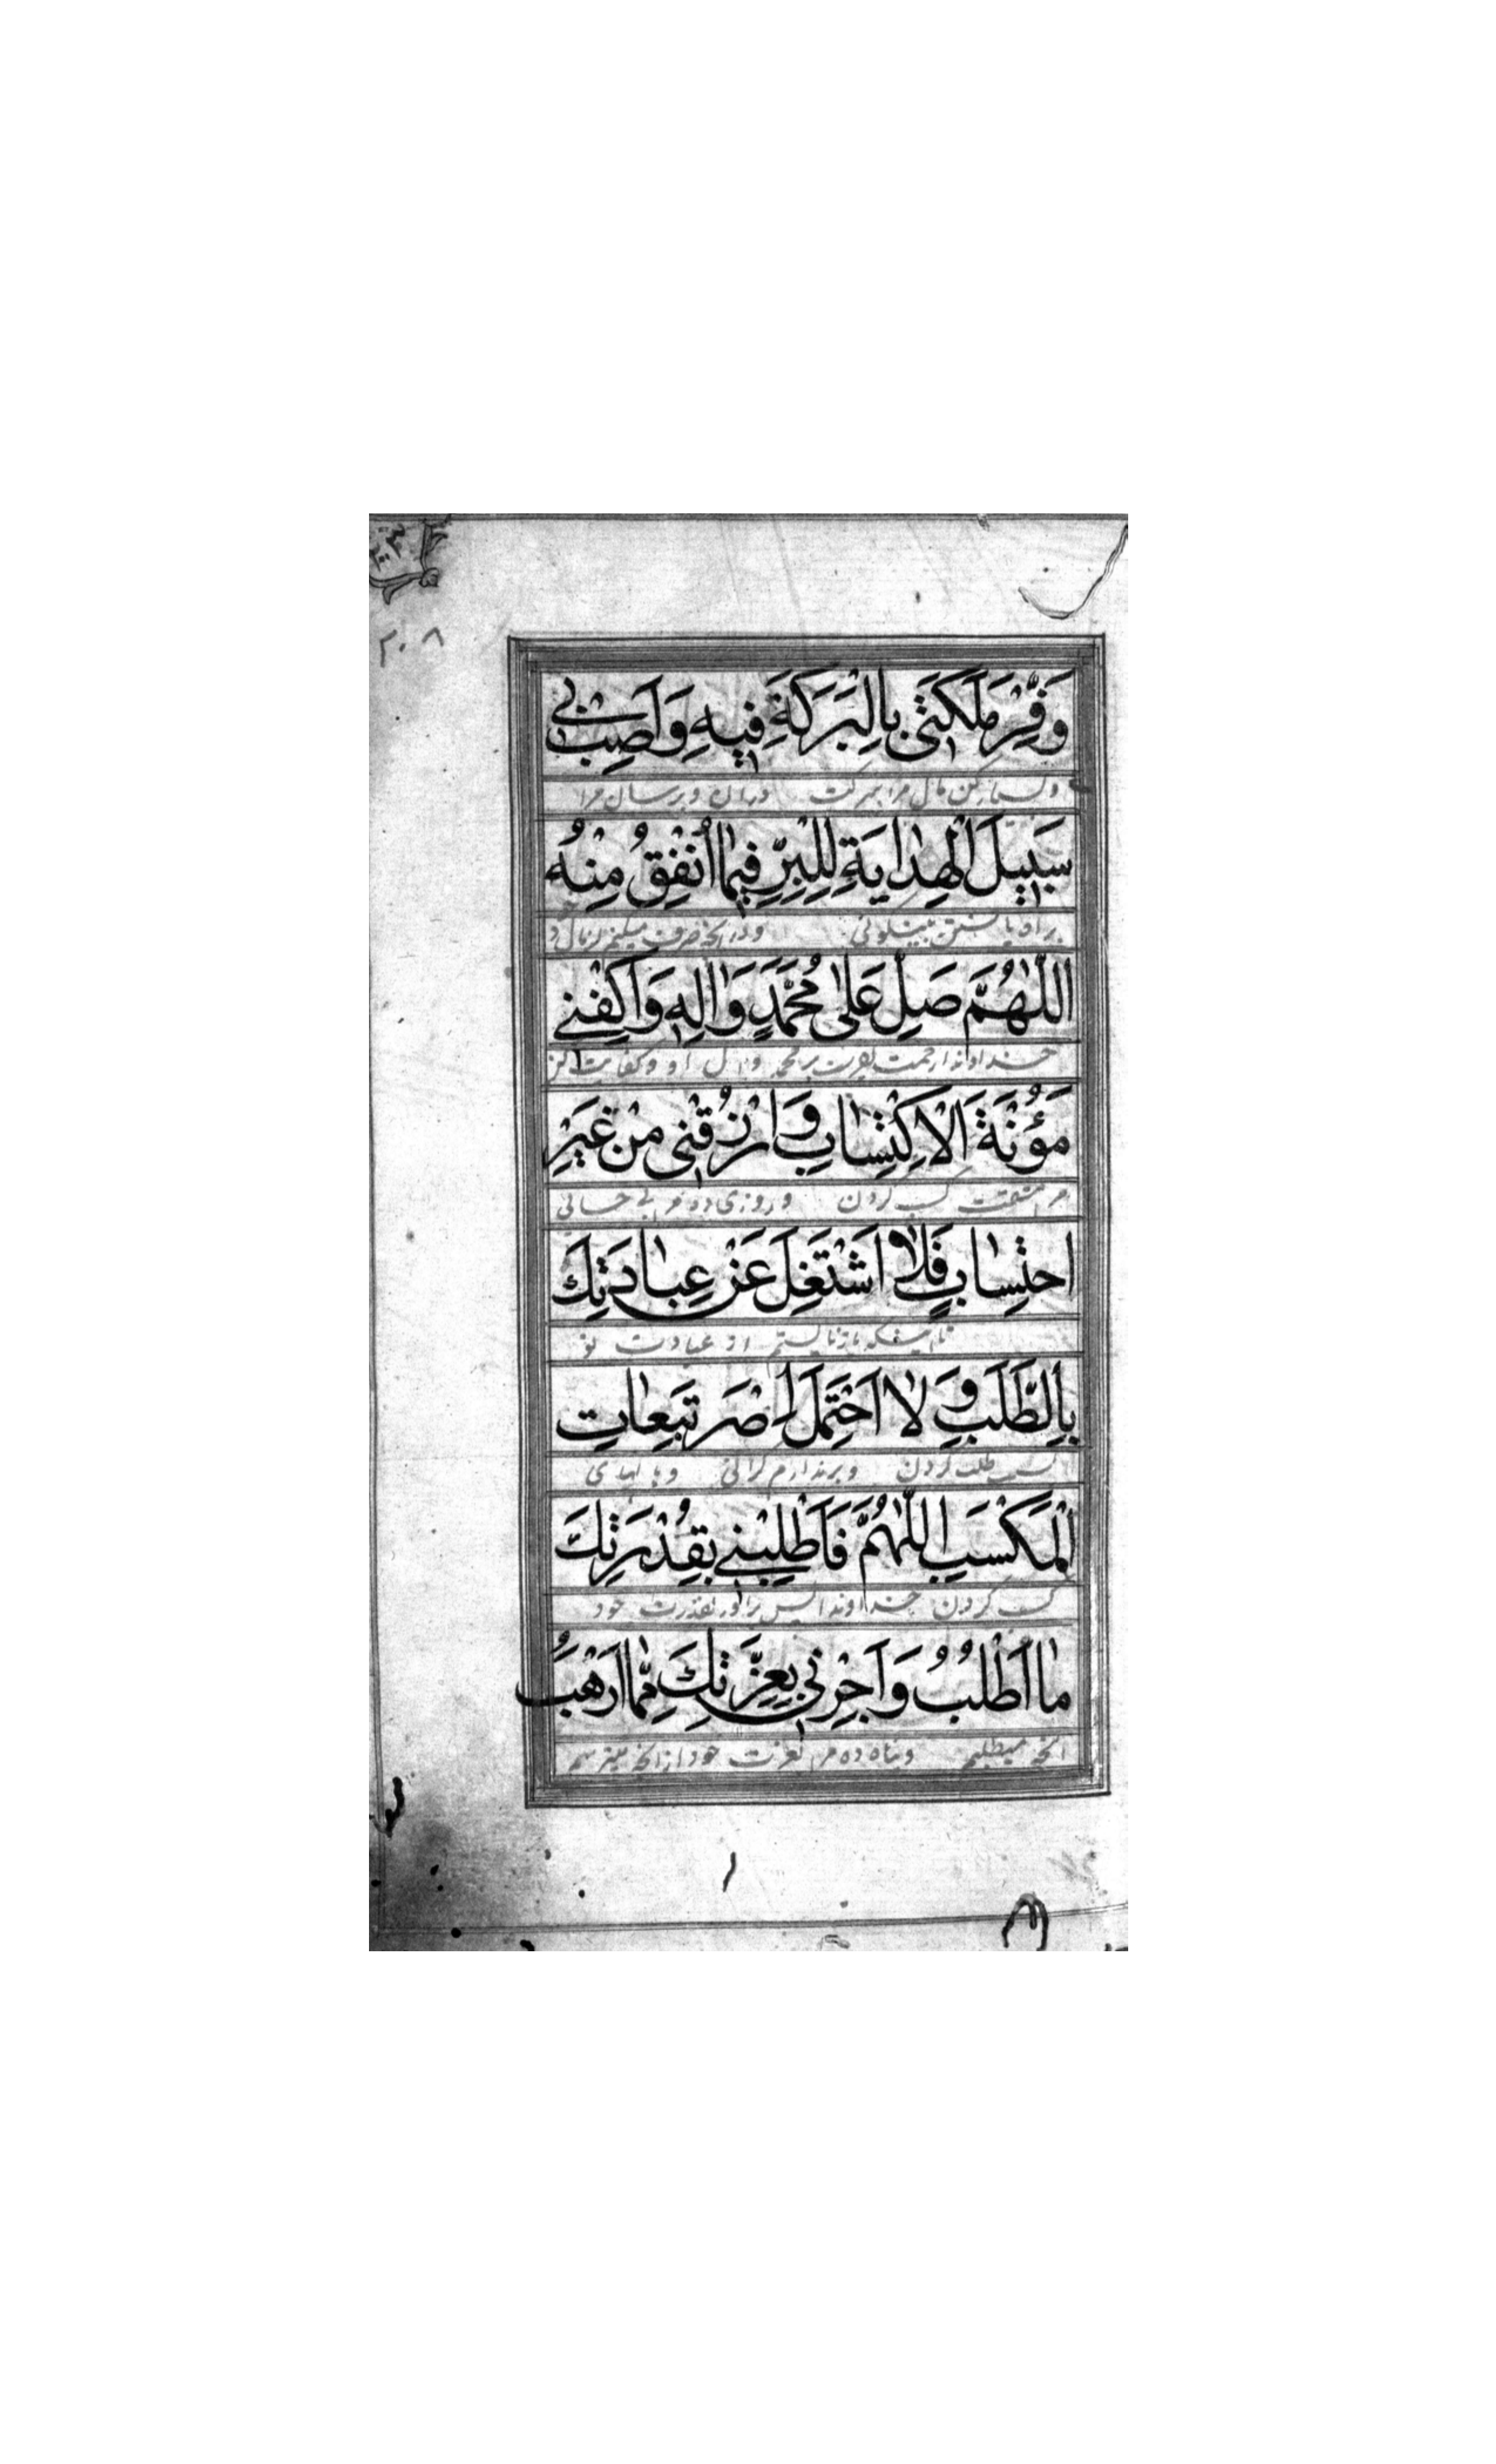 ۲۰۸
وَفِّرْ مَلَكَتي بِالْبَرَكَةِ فيهِ وَاَصِبْ بي
وبسیار کن مال مرا ببرکت دران وبرسان مرا
سَبيلَ الْهِدايَةِ لِلْبِرِّ فيما اُنْفِقُ مِنْهُ
براه یافتن بنیکوئی ودر انچه صرف میکنم از مال خود
اَللّٰهُمَّ صَلِّ عَلىٰ مُحَمَّدٍ وَالِهِ وَاكْفِني
خداوندا رحمت بفرست بر محمد وال او وکفایت کن
مَؤُنَةَ الْاِكْتِسابِ وَارْزُقْني مِنْ غَيْرِ
مشقت کسب کردن وروزی ده مرا بی
احْتِسابٍ فَلا اَشْتَغِلَ عَنْ عِبادَتِكَ
تا اینکه باز نایستم از عبادت تو
بِالطَّلَبِ وَلا اَحْتَمِلَ اِصْرَ تَبِعاتِ
طلب کردن وبرندارم گرانی وبالهای
الْمَكْسَبِ اَللّٰهُمَّ فَاَطْلِبْني بِقُدْرَتِكَ
کسب کردن خداوندا پس براور بقدرت خود
ما اَطْلُبُ وَاَجِرْني بِعِزَّتِكَ مِمّا اَرْهَبُ
انچه میطلبم وپناه ده مرا بعزت خود از انچه میترسم